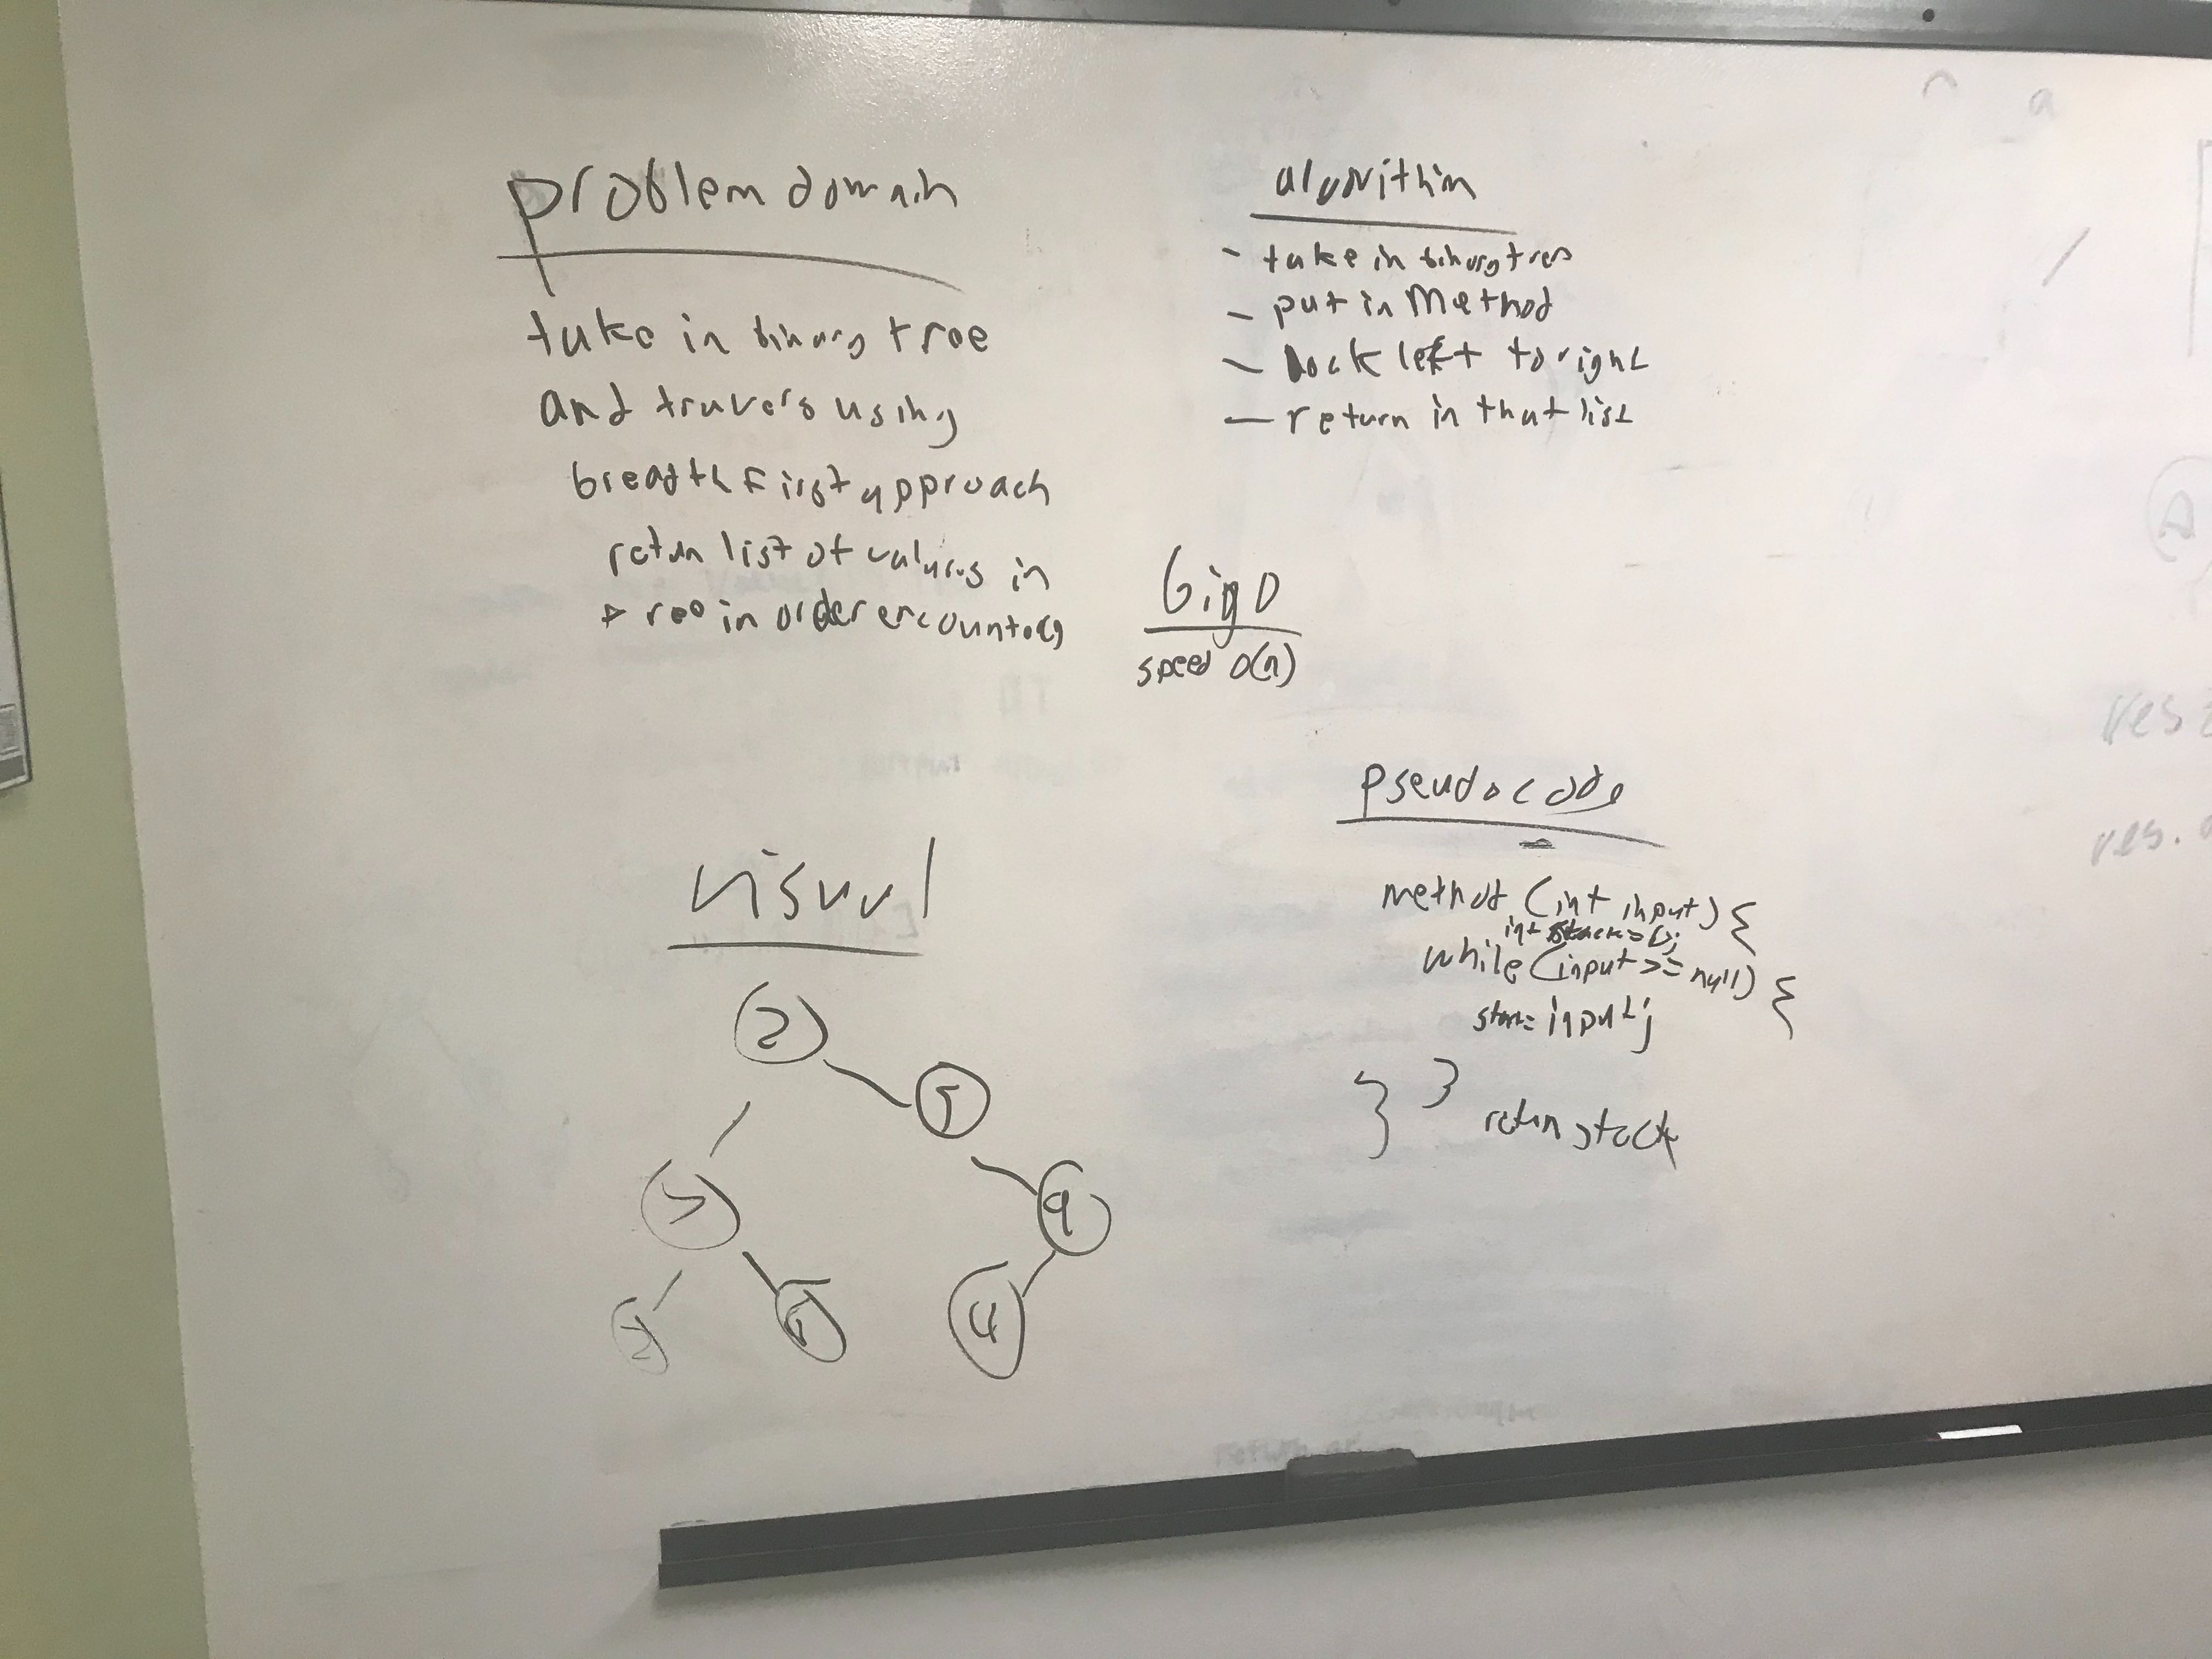 problem domain
take in binary tree
and travers using
breadth First approach
return list of values in
tree in order encountered
algorithim
- take in binary tree
- put in Method
- look left to right
- return in that list
big O
speed O(n)
pseudocode
method (int input) {
int stack = [];
while (input >= null) {
input;
} }
return stack
visual
2
5
7
9
4
res
res.
a
A